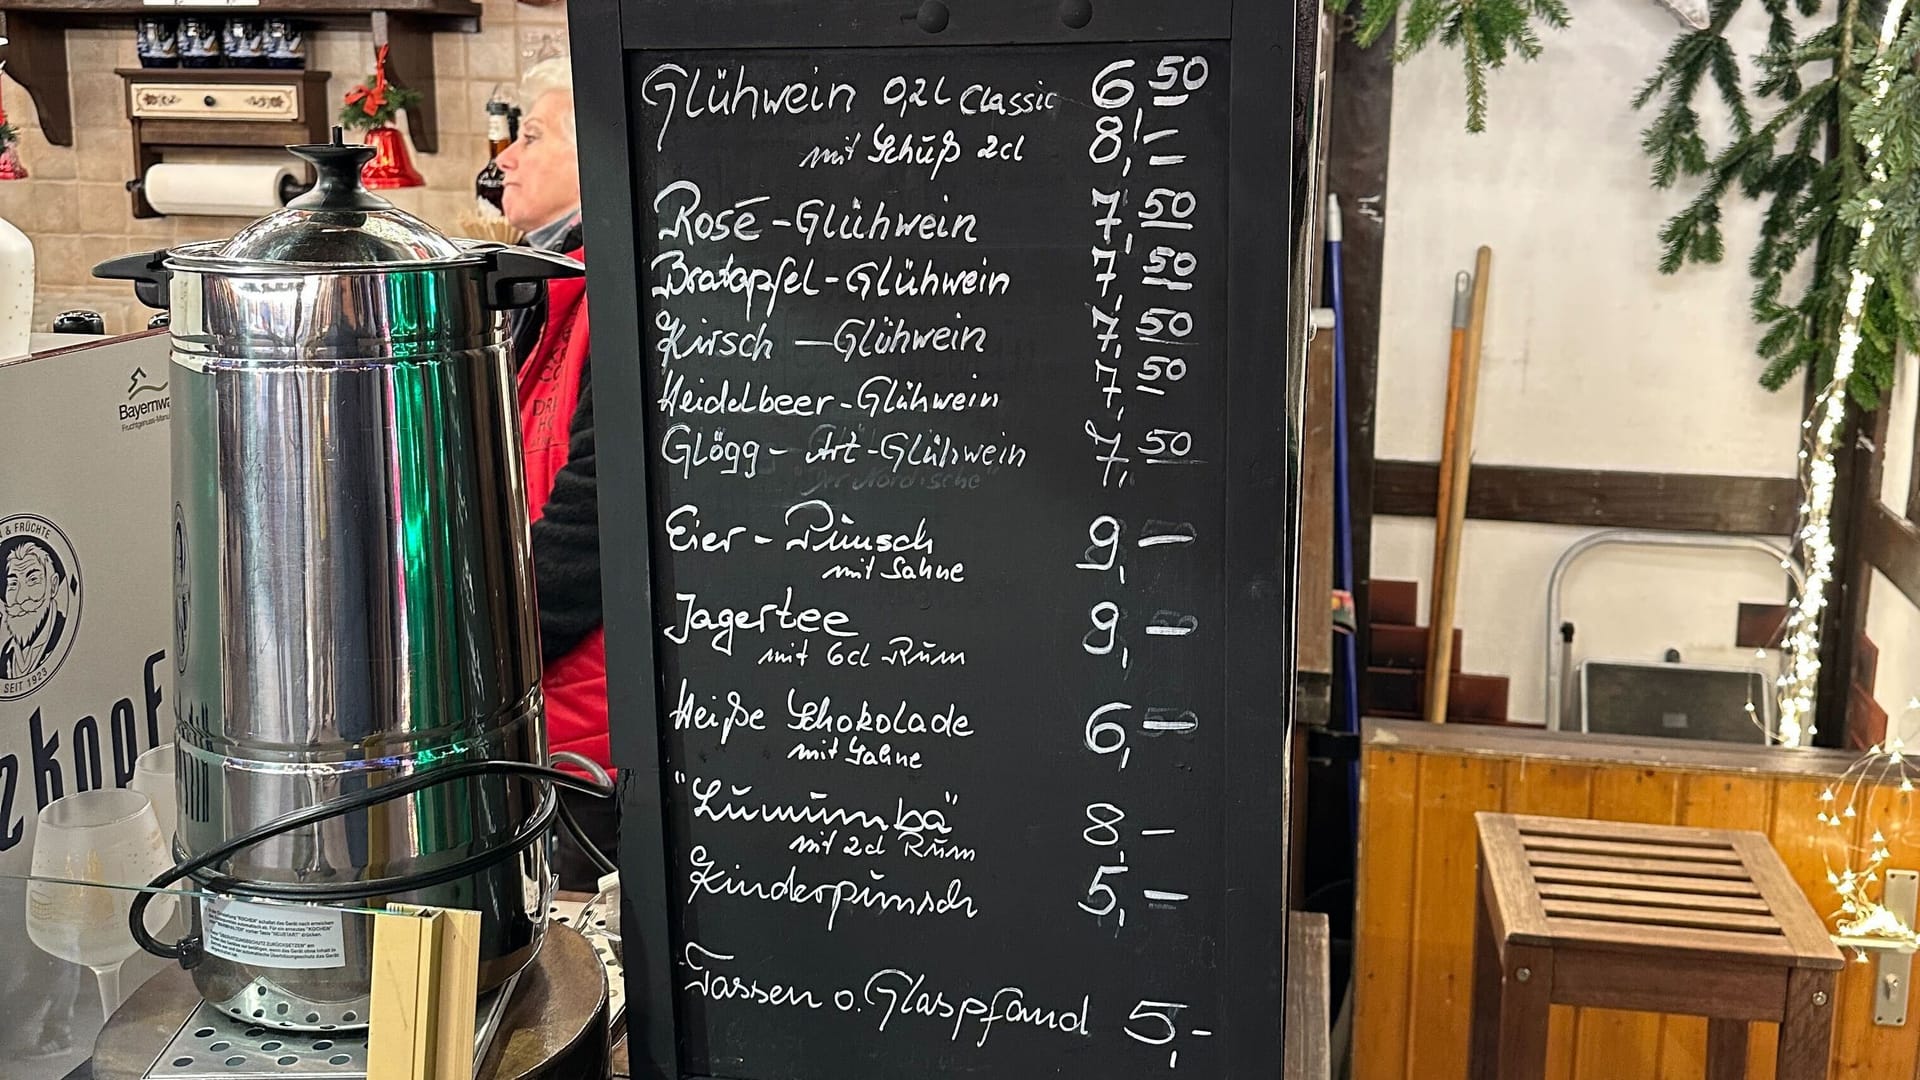 Glühwein 0,2l Classic 6,50
mit Schuß 2cl 8,-
Rosé-Glühwein 7,50
Bratapfel-Glühwein 7,50
Kirsch-Glühwein 7,50
Heidelbeer-Glühwein 7,50
Glögg-Art-Glühwein 7,50
Eier-Punsch 9,-
mit Sahne
Jagertee 9,-
mit 6cl Rum
Heiße Schokolade 6,-
mit Sahne
"Lumumba" 8,-
mit 2cl Rum
Kinderpunsch 5,-
Tassen o. Glaspfand 5,-
& FRÜCHTE
SEIT 1923